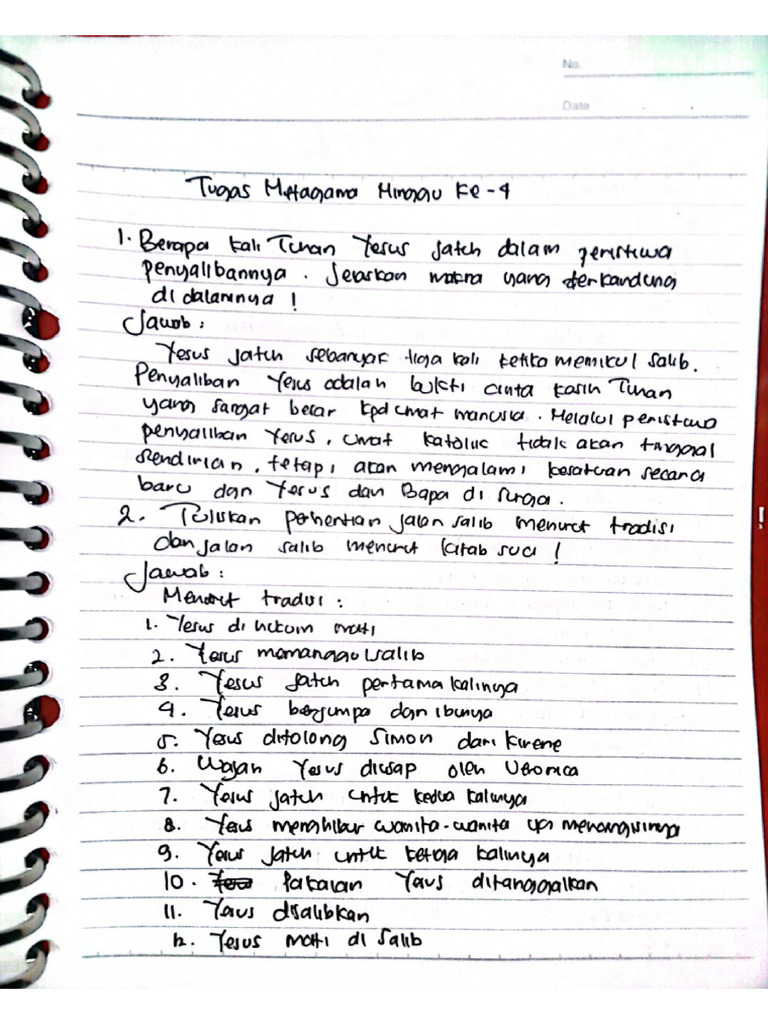 No.
Date
Tugas Metagama Minggu Ke-4
1. Berapa kali Tuhan Yesus jatuh dalam peristiwa
penyalibannya. Jelaskan makna yang terkandung
di dalamnya!
Jawab:
Yesus jatuh sebanyak tiga kali ketika memikul salib.
Penyaliban Yesus adalah bukti cinta kasih Tuhan
yang sangat besar kpd umat manusia. Melalui peristiwa
penyaliban Yesus, umat katolik tidak akan tinggal
sendirian, tetapi akan mengalami kesatuan secara
baru dgn Yesus dan Bapa di Surga.
2. Tuliskan perhentian jalan salib menurut tradisi
dan jalan salib menurut kitab suci!
Jawab:
Menurut tradisi:
1. Yesus di hukum mati
2. Yesus memanggul salib
3. Yesus jatuh pertama kalinya
4. Yesus berjumpa dgn ibunya
5. Yesus ditolong Simon dari Kirene
6. Wajah Yesus diusap oleh Veronica
7. Yesus jatuh untuk kedua kalinya
8. Yesus menghibur wanita-wanita yg menangisinya
9. Yesus jatuh untuk ketiga kalinya
10. Pakaian Yesus ditanggalkan
11. Yesus disalibkan
12. Yesus mati di salib